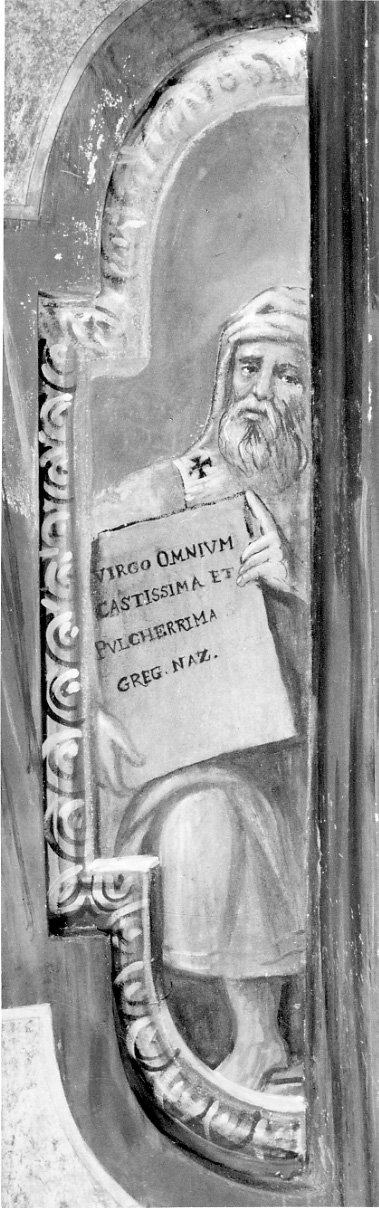 VIRGO OMNIVM
CASTISSIMA ET
PVLCHERRIMA
GREG. NAZ.